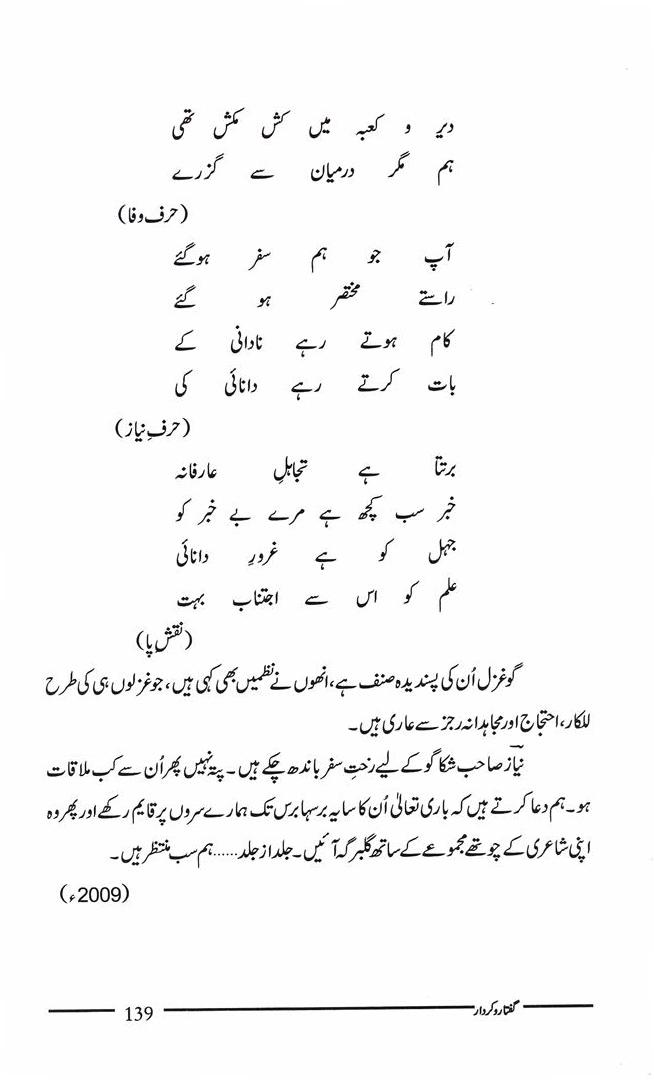 دیر و کعبہ میں کش مکش تھی
ہم مگر درمیان سے گزرے
(حرف وفا)
آپ جو ہم سفر ہوگئے
راستے مختصر ہو گئے
کام ہوتے رہے نادانی کے
بات کرتے رہے دانائی کی
(حرفِ نیاز)
برتتا ہے تجاہلِ عارفانہ
خبر سب کچھ ہے مرے بے خبر کو
جہل کو ہے غرورِ دانائی
علم کو اس سے اجتناب بہت
(نقشِ پا)
گو غزل اُن کی پسندیدہ صنف ہے، انھوں نے نظمیں بھی کہی ہیں، جو غزلوں ہی کی طرح
للکار، احتجاج اور مجاہدانہ رجز سے عاری ہیں۔
نیازؔ صاحب شکاگو کے لیے رختِ سفر باندھ چکے ہیں۔ پتہ نہیں پھر اُن سے کب ملاقات
ہو۔ ہم دعا کرتے ہیں کہ باری تعالیٰ اُن کا سایہ برسہا برس تک ہمارے سروں پر قایم رکھے اور پھر وہ
اپنی شاعری کے چوتھے مجموعے کے ساتھ گلبرگہ آئیں۔ جلد از جلد...... ہم سب منتظر ہیں۔
(2009ء)
گفتار و کردار 139